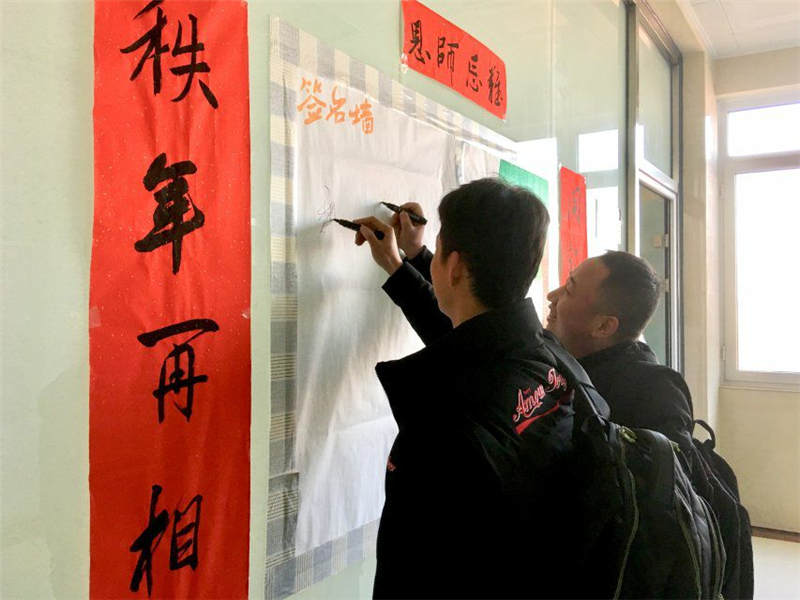 秩年再相
签名墙
恩师忘難